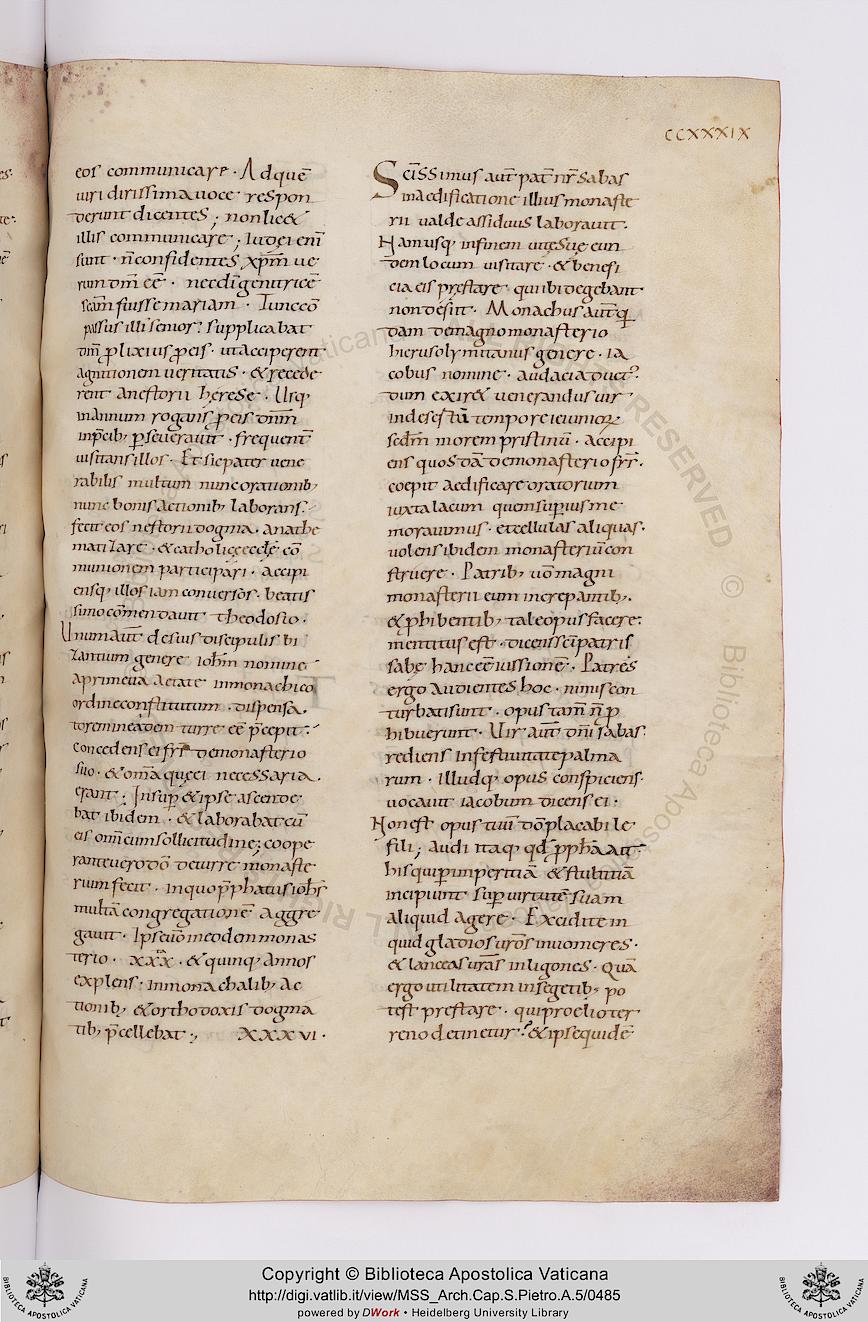 CCXXXIX
eos communicare · Ad quē
uiri dirissima uoce respon
derunt dicentes ; non licet
illis communicare ; Iudei enī
sunt · n̄ confidentes xp̄m ue
rum dm̄ eē · nec dī genitricē
scām fuisse mariam · Tunc cō
passus illi senior ? supplicabat
dn̄m ꝓlixius ꝓ eis · ut acciperent
agnitionem ueritatis · & recede
rent a nestorii herese · Usq;
in annum rogans ꝓ eis dn̄m
in p̄cib; ꝑseuerauit · frequent̄
uisitans illos · Et sic pater uene
rabilis multum nunc orationib;
nunc bonis actionib; laborans ·
fecit eos nestorii dogma · anathe
matizare · & catholicę eccłe cō
munionem participari · accipi
ensq; illos iam conuersos · beatis
simo cōmendauit theodosio ·
Unum aut̄ de suis discipulis bi
zantium genere ioh̄m nomine
a primeua aetate in monachico
ordine constitutum · dispensa
torem in eadem turre eē p̄cepit ·
concedens ei fr̄s de monasterio
suo · & om̄a quę ei necessaria
erant ; Insuꝑ & ipse ascende
bat ibidem · & laborabat cū
eis omī cum sollicitudine ; coope
rante uero dō de turre monaste
rium fecit · in quo p̄phatus ioh̄s
multā congregationē aggre
gauit · Ipse uō in eodem monas
terio · xxx · & quinq; annos
explens · in monachalib; ac
tionib; & orthodoxis dogma
tib; p̄cellebat ; XXXVI ·
Scīssimus aut̄ pat̄ nr̄ sabas
in aedificatione illius monaste
rii ualde assiduus laborauit ·
Nam usq; in finem uitę suę eun
dem locum uisitare · & benefi
cia eis pręstare · qui ibi degebant
non desiit · Monachus aut̄ qi
dam de magno monasterio
hierusolymitanus genere · ia
cobus nomine · audacia duct ?
dum exiret uenerandus uir
in desertū tempore ieiuniorꝝ
scdm̄ morem pristinū · accipi
ens quosdā de monasterio fr̄s ·
coepit aedificare oratorium
iuxta lacum quem superius me
morauimus · et cellulas aliquas ·
uolens ibidem monasteriū con
struere · Patrib; uō magni
monasterii eum increpantib; ·
& ꝓhibentib; tale opus facere ·
mentitus est · dicens scī patris
sabę hanc eē iussionē · Patres
ergo audientes hoc · nimis con
turbati sunt · opus tam̄ n̄ ꝓ
hibuerunt · Uir aut̄ dn̄i sabas
rediens in festiuitate palma
rum · illudq; opus conspiciens ·
uocauit iacobum dicens ei ·
Non est opus tuū dō placabile
fili ; audi itaq; qd̄ ꝓph̄a ait ·
his qui ꝑ imperitiā & stultitiā
incipiunt suꝑ uirtutē suam
aliquid agere · Excidite in
quid gladios ur̄os in uomeres ·
& lanceas ur̄as in ligones · Quā
ergo utilitatem in segetib; po
test prestare · qui proelio ter
reno detinetur ? & ipse quidē
Copyright © Biblioteca Apostolica Vaticana
http://digi.vatlib.it/view/MSS_Arch.Cap.S.Pietro.A.5/0485
powered by DWork • Heidelberg University Library